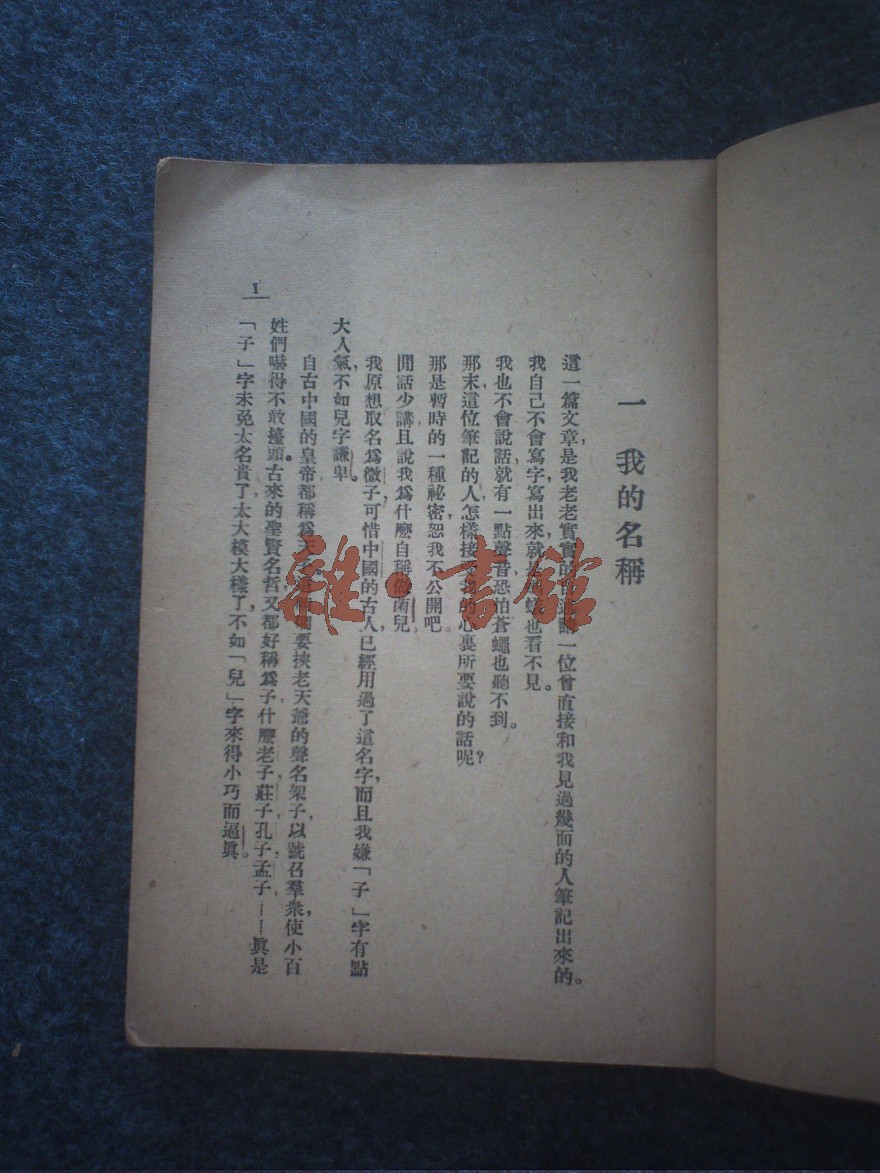 一 我的名稱
這一篇文章,是我老老實實的自述請一位曾直接和我見過幾面的人筆記出來的。
我自己不會寫字,寫出來就是螞蟻也看不見。
我也不會說話,就有一點聲音,恐怕蒼蠅也聽不到。
那末,這位筆記的人,怎樣接受我的心裏所要說的話呢?
那是暫時的一種祕密,恕我不公開吧。
閒話少講,且說我爲什麼自稱做菌兒。
我原想取名爲微子,可惜中國的古人,已經用過了這名字,而且我嫌「子」字有點
大人氣,不如兒字謙卑。
自古中國的皇帝都稱爲天子。要挾老天爺的聲名架子,以號召羣衆,使小百
姓們嚇得不敢擡頭。古來的聖賢名哲,又都好稱爲子,什麼老子,莊子,孔子,孟子——眞是
「子」字未免太名貴了,太大模大樣了,不如「兒」字來得小巧而逼眞。
1
雜·書館